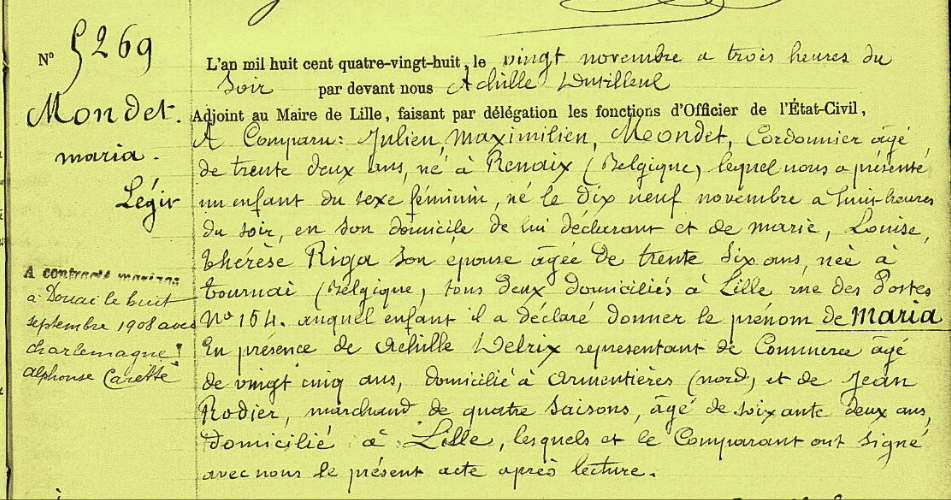 N° 5269
Mondet.
maria.
Légit
A contracté mariage
à Douai le huit
septembre 1908 avec
charlemagne
alphonse Carette
L'an mil huit cent quatre-vingt-huit, le vingt novembre a trois heures du
Soir par devant nous Achille Dutilleul
Adjoint au Maire de Lille, faisant par délégation les fonctions d'Officier de l'État-Civil,
A Comparu: Julien, Maximilien, Mondet, Cordonnier âgé
de trente deux ans, né à Renaix (Belgique) lequel nous a présenté
un enfant du sexe féminin, né le dix neuf novembre a huit heures
du soir, en son domicile de lui déclarant et de marie, Louise,
thérèse Riga son epouse âgée de trente six ans, née à
tournai (Belgique, tous deux domiciliés à Lille rue des Postes
N° 154. auquel enfant il a déclaré donner le prénom de Maria
En présence de Achille Delrix representant de Commerce âgé
de vingt cinq ans, domicilié à armentières (nord) et de Jean
Rodier, marchand de quatre saisons, âgé de soixante deux ans,
domicilié à Lille, lesquels et le Comparant ont signé
avec nous le présent acte après lecture.